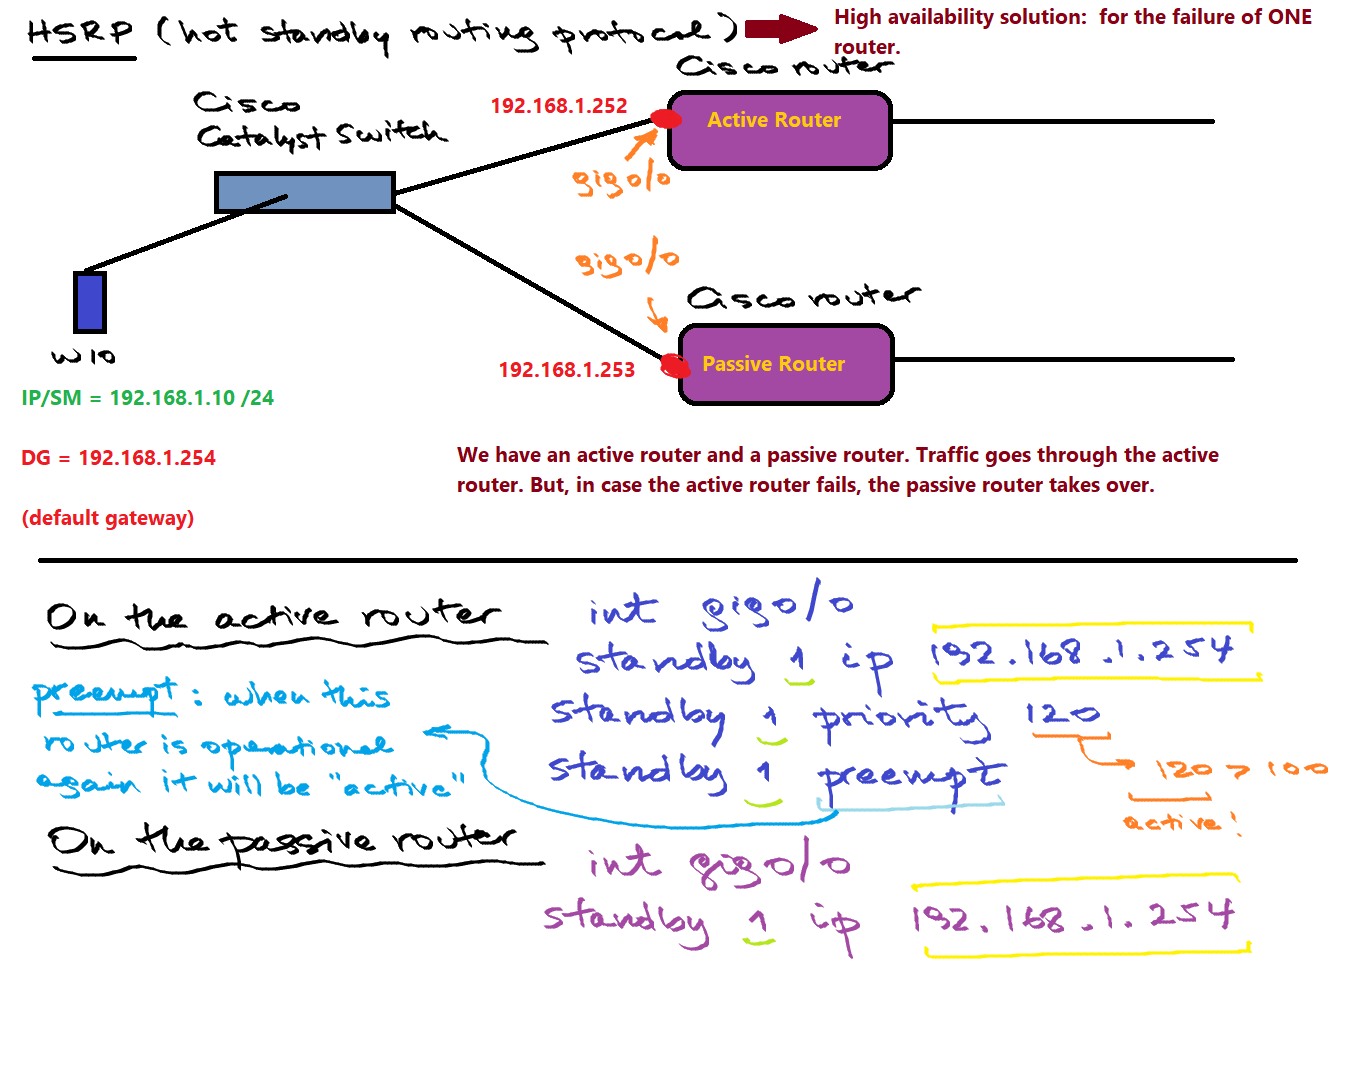 HSRP (hot standby routing protocol)
High availability solution:  for the failure of ONE
router.
Cisco router
Cisco
Catalyst Switch
192.168.1.252
Active Router
gig0/0
gig0/0
Cisco router
W10
192.168.1.253
Passive Router
IP/SM = 192.168.1.10 /24
DG = 192.168.1.254
(default gateway)
We have an active router and a passive router. Traffic goes through the active
router. But, in case the active router fails, the passive router takes over.
On the active router
int gig0/0
standby 1 ip 192.168.1.254
standby 1 priority 120
standby 1 preempt
120 > 100
active!
preempt: when this
router is operational
again it will be "active"
On the passive router
int gig0/0
standby 1 ip 192.168.1.254